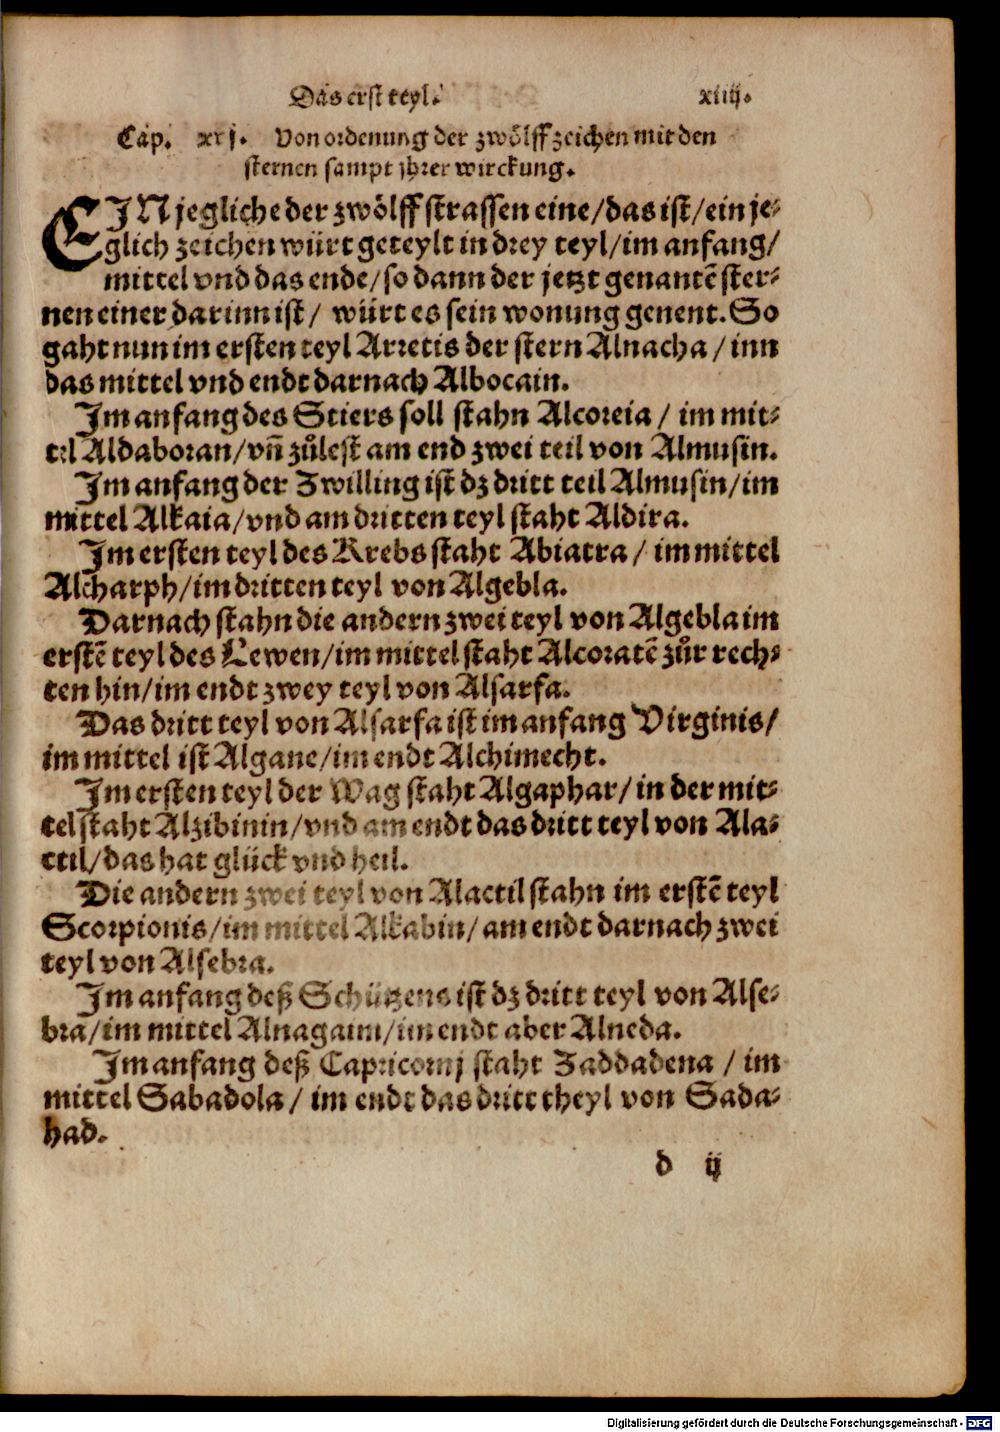 Das erst teyl. xiiij.
Cap. xxj. Von ordenung der zwölff zeichen mit den
sternen sampt jhrer wirckung.
EIN jegliche der zwölff strassen eine/das ist/ein je-
glich zeichen würt geteylt in drey teyl/im anfang/
mittel vnd das ende/so dann der jetzt genantē ster-
nen einer darinn ist/ würt es sein wonung genent. So
gaht nun im ersten teyl Arietis der stern Alnacha/inn
das mittel vnd endt darnach Albocain.
Im anfang des Stiers soll stahn Alcoreia/ im mit-
tel Aldaboran/vn̄ zůlest am end zwei teil von Almusin.
Im anfang der Zwilling ist dz dritt teil Almusin/im
mittel Alkaia/vnd am dritten teyl staht Aldira.
Im ersten teyl des Krebs staht Abiatra/ im mittel
Alcharph/im dritten teyl von Algebla.
Darnach stahn die andern zwei teyl von Algebla im
erstē teyl des Lewen/im mittel staht Alcoratē zůr rech-
ten hin/im endt zwey teyl von Alsarfa.
Das dritt teyl von Alsarfa ist im anfang Virginis/
im mittel ist Algane/im endt Alchimecht.
Im ersten teyl der Wag staht Algaphar/in der mit-
tel staht Alzibinin/vnd am endt das dritt teyl von Ala-
ctil/das hat glück vnd heil.
Die andern zwei teyl von Alactil stahn im erstē teyl
Scorpionis/im mittel Alkabin/am endt darnach zwei
teyl von Alsebra.
Im anfang deß Schützens ist dz dritt teyl von Alse-
bra/im mittel Alnagaim/im endt aber Alneda.
Im anfang deß Capricornj staht Zaddadena/im
mittel Sabadola/ im endt das dritt theyl von Sada-
had.
d ij
Digitalisierung gefördert durch die Deutsche Forschungsgemeinschaft - DFG